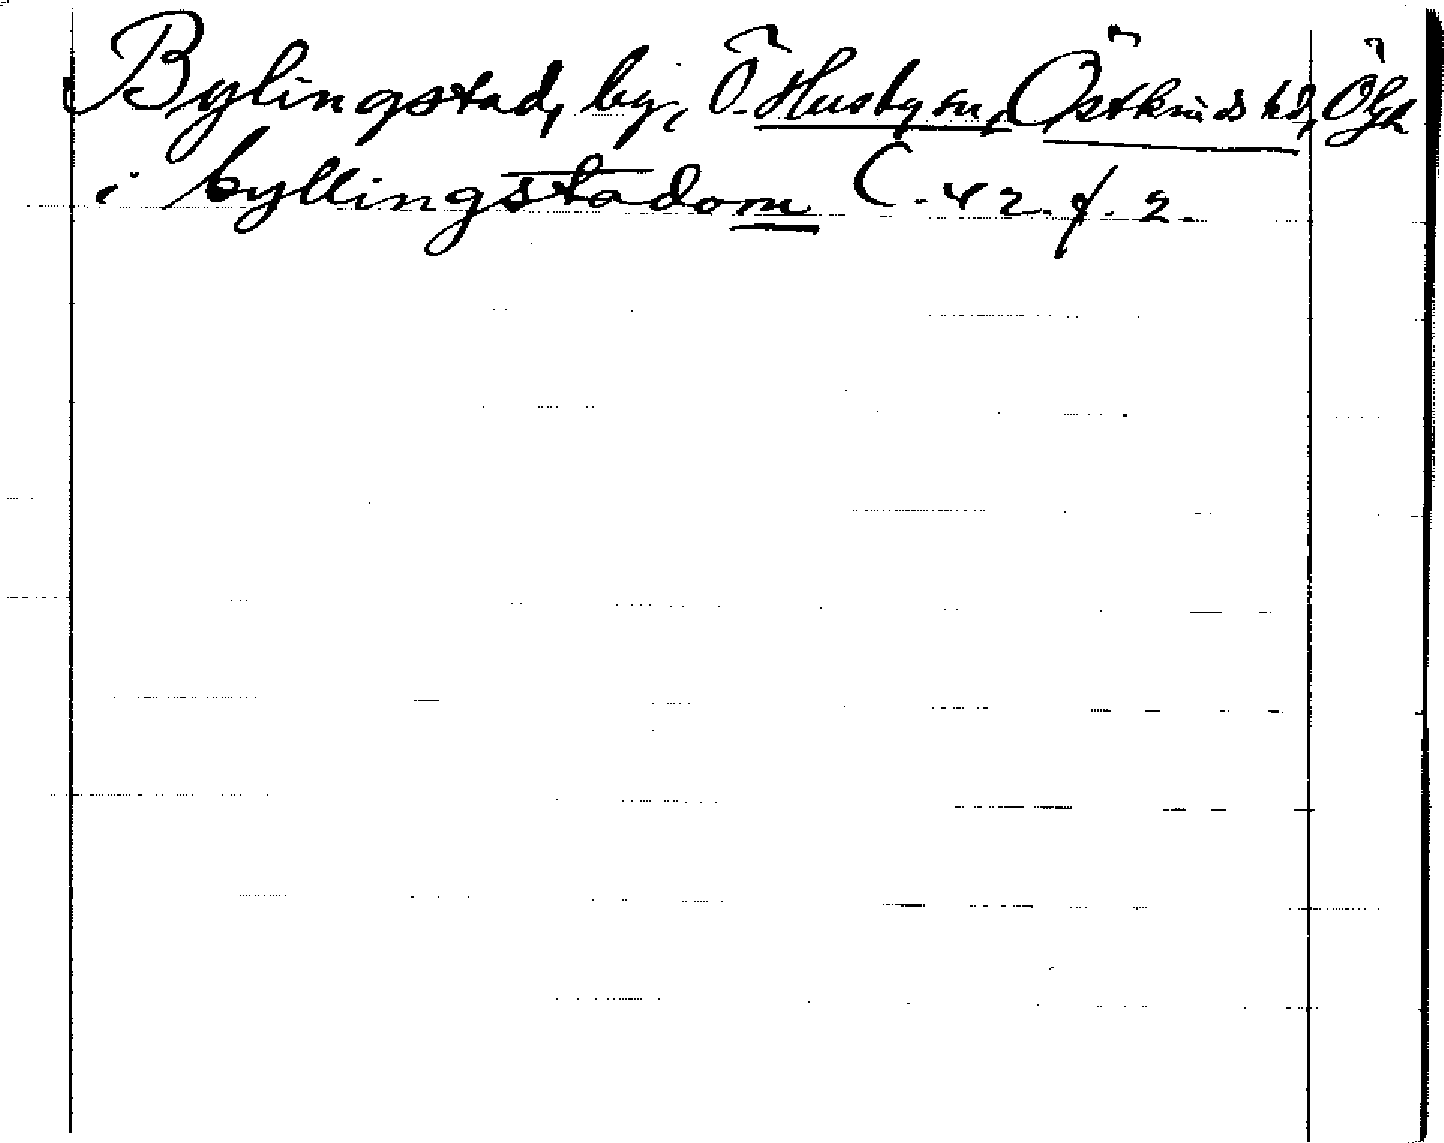 Bylingstad, by, Ö. Husby sn, Östkinds hd, Ögl
i byllingstadom C. 42. f. 2.